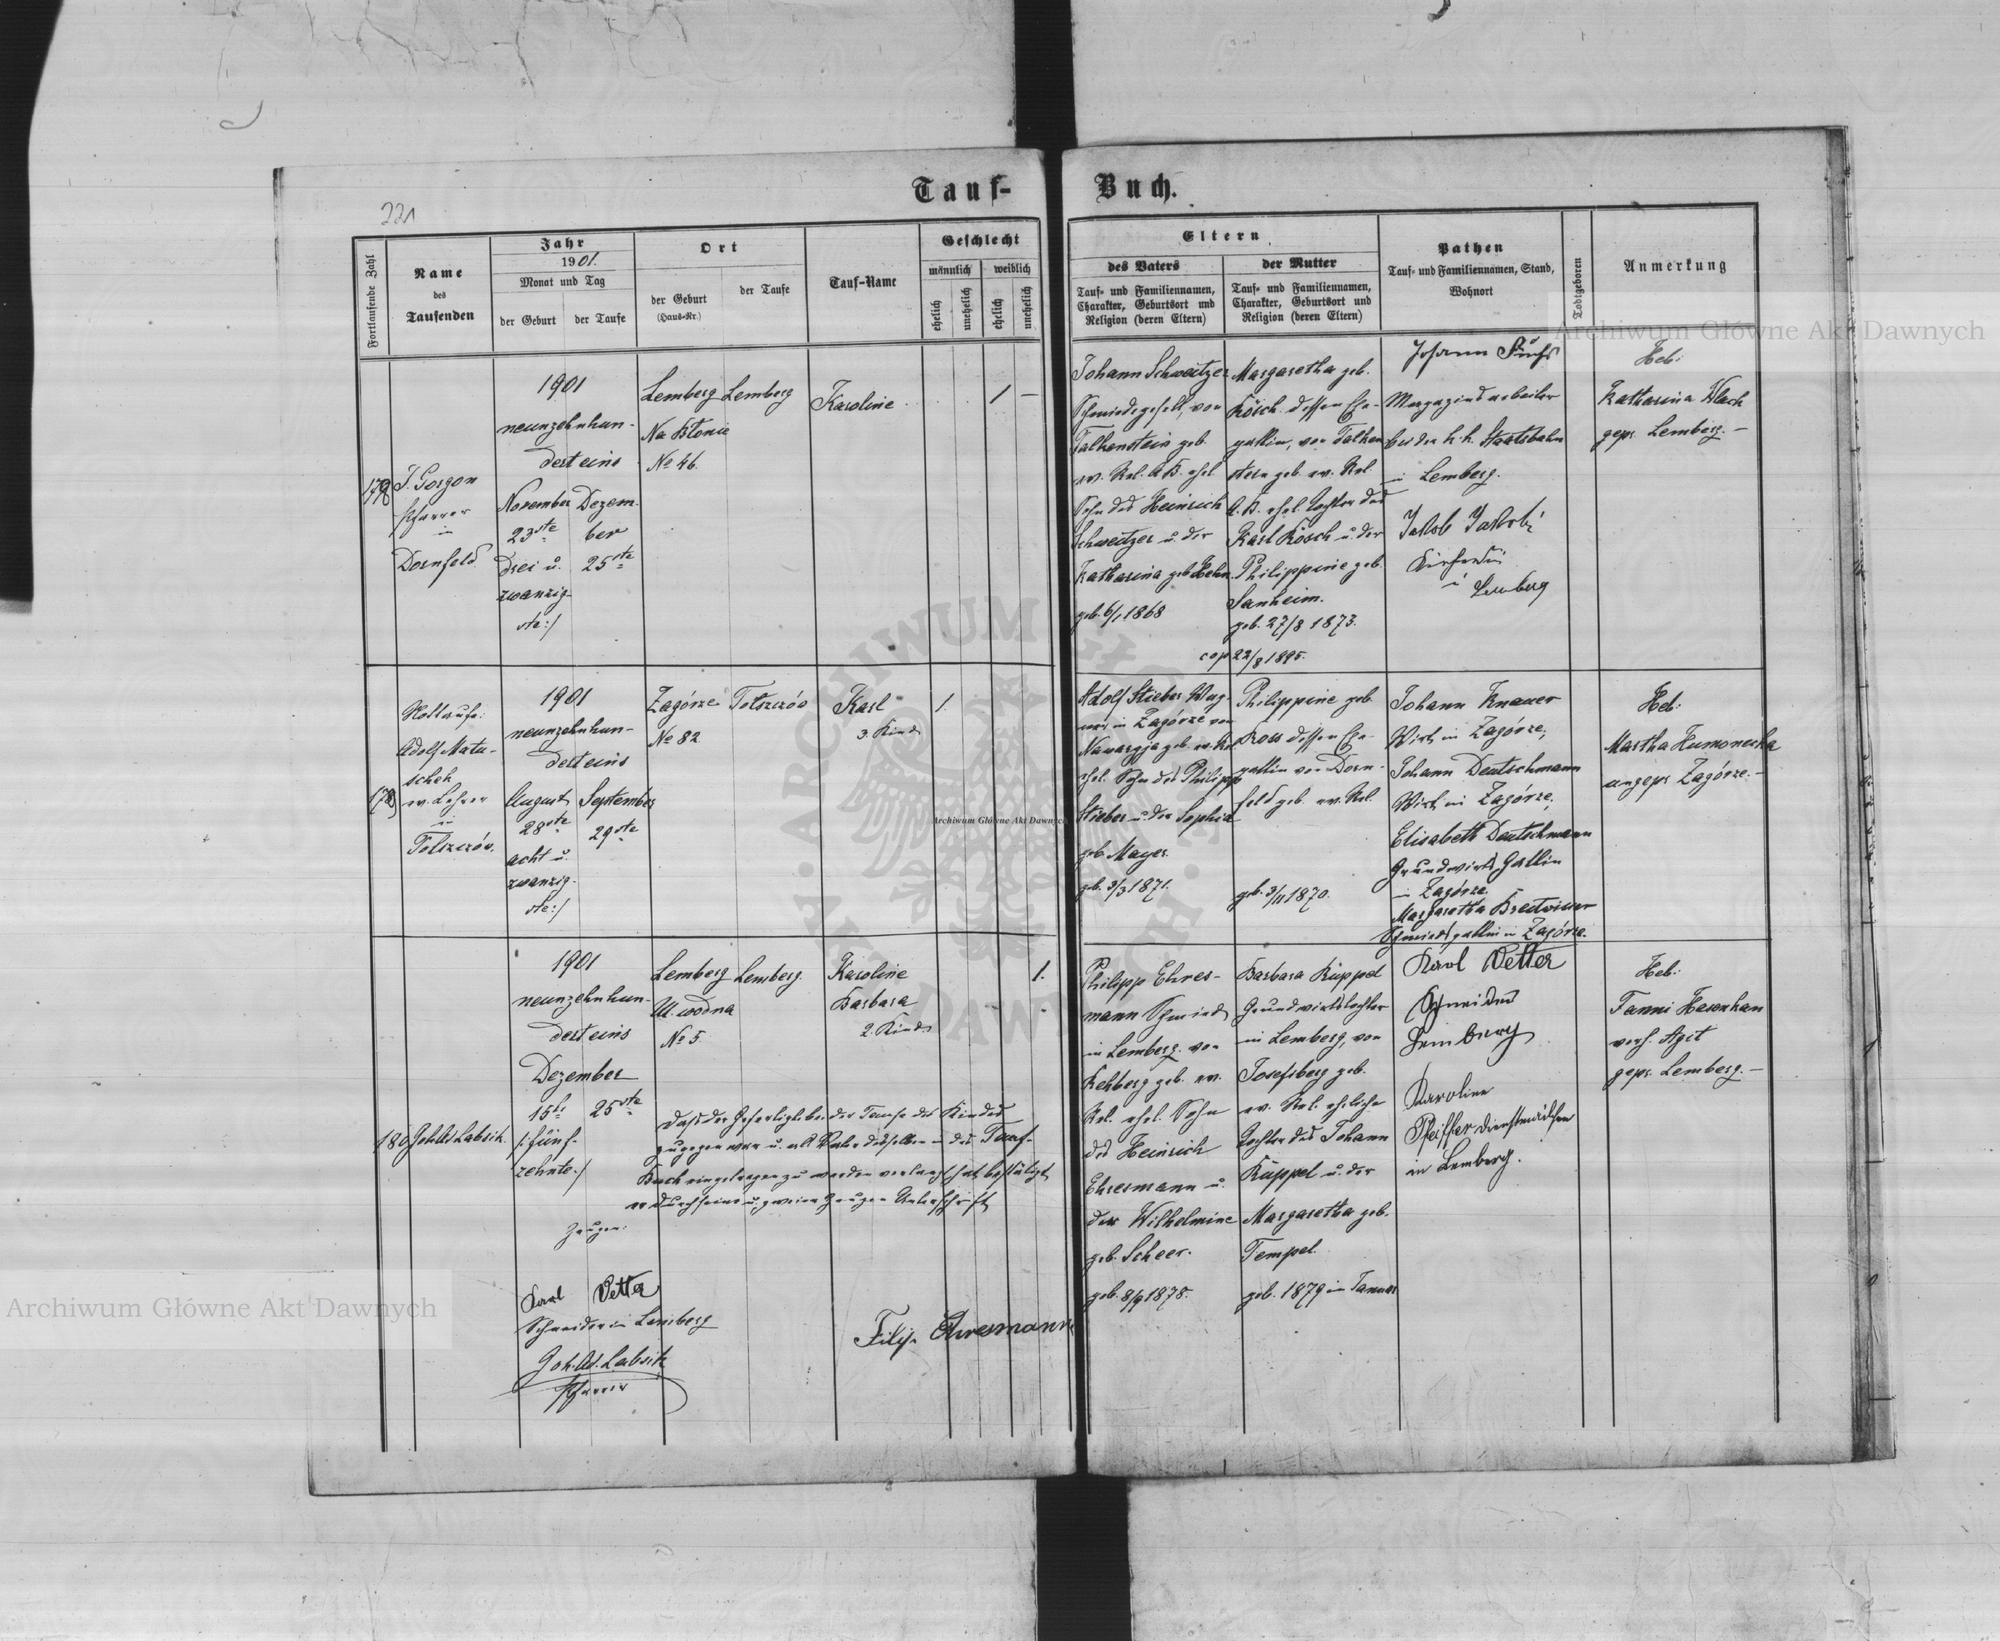 Tauf-
Buch.
221
Fortlaufende Zahl
Name
des
Taufenden
Jahr
1901.
Monat und Tag
der Geburt
der Taufe
Ort
der Geburt
(Haus-Nr.)
der Taufe
Tauf-Name
Geschlecht
männlich
weiblich
ehelich
unehelich
ehelich
unehelich
Eltern
des Vaters
Tauf- und Familiennamen,
Charakter, Geburtsort und
Religion (deren Eltern)
der Mutter
Tauf- und Familiennamen,
Charakter, Geburtsort und
Religion (deren Eltern)
Pathen
Tauf- und Familiennamen, Stand,
Wohnort
Todtgeboren
Anmerkung
178
J. Gorgon
Pfarrer
in
Dornfeld
1901
neunzehnhun-
dert eins
November
23ste
Drei u.
zwanzig-
ste:/
Dezem-
ber
25ste
Lemberg
Na Błonie
No 46.
Lemberg
Karoline
1
—
Johann Schweitzer
Schmiedegesell, von
Falkenstein geb.
ev. Rel. A.B. ehel.
Sohn des Heinrich
Schweitzer u. der
Katharina geb. Hehn.
geb. 6/1 1868
Margaretha geb.
Kösch. dessen Ehe-
gattin, von Falken
stein geb. ev. Rel.
A.B. ehel. Tochter des
Karl Kösch u. der
Philippine geb.
Sanheim.
geb. 27/8 1873.
cop 22/8 1895.
Johann Fuchs
Magazinsarbeiter
bei der k.k. Staatsbahn
in Lemberg.
Jakob Jakobi
in Lemberg
Heb:
Katharina Wlach
gepr. Lemberg. —
179
Nottaufe:
Adolf Matu-
schek
ev. Lehrer
in
Tolszczów.
1901
neunzehnhun-
dert eins
August
28ste
acht u.
zwanzig-
ste:/
September
29ste
Zagórze
No 82
Tolszczów
Karl
3. Kind
1
Adolf Stieber Wag-
ner, in Zagórze von
geb. ev. Rel.
ehel. Sohn des Philipp
Stieber u. der Sophie
geb. Mayer.
geb. 3/3 1871.
Philippine geb.
Kross dessen Ehe-
gattin von Dorn-
feld geb. ev. Rel.
geb. 3/11 1870.
Johann Knauer
Wirt, in Zagórze;
Johann Deutschmann
Wirt, in Zagórze;
Elisabeth Deutschmann
Grundwirts Gattin
in Zagórze.
Margaretha Bredwieser
Schmiedsgattin in Zagórze.
Heb:
Martha Humonecka
ungepr. Zagórze. —
180
Joh. Ad. Labsik.
1901
neunzehnhun-
dert eins
Dezember
15te
/:fünf-
zehnte:/
25ste
Lemberg
Ul. wodna
No 5.
Lemberg.
Karoline
Barbara
2. Kind
1.
Philipp Ehres-
mann Schmied
in Lemberg. von
Rehberg geb. ev.
Rel. ehel. Sohn
des Heinrich
Ehresmann u.
der Wilhelmine
geb. Scheer.
geb. 8/9 1878.
Barbara Küppel
Grundwirtstochter
in Lemberg, von
Josefsberg geb.
ev. Rel. eheliche
Tochter des Johann
Küppel u. der
Margaretha geb.
Tempel.
geb. 1879 im Januar
Karl Vetter
Schneider
Lemberg
Karoline
Pfeiffer Dienstmädchen
in Lemberg.
Heb:
Fanni Hasenhan
verh. Agit
gepr. Lemberg. —
Daß der Gefertigte bei der Taufe des Kindes
zugegen war u. als Vater desselben in das Tauf-
Buch eingetragen zu werden verlangt hat, bestätigt
er durch seine u. zweier Zeugen Unterschrift
Zeugen:
Karl Vetter
Schneider in Lemberg
Joh. Ad. Labsik
Pfarrer
Filip Ehresmann
Archiwum Główne Akt Dawnych
Archiwum Główne Akt Dawnych
Archiwum Główne Akt Dawnych